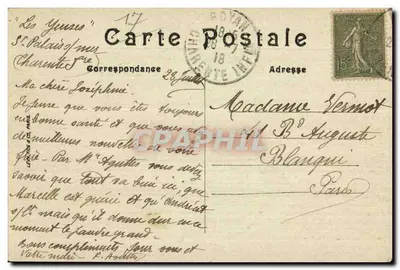 "Les Yeuses" 17
St Palais s/mer
Charente Inre
Carte Postale
Correspondance
Adresse
28 Juillet
ROYAN
18
CHARENTE INFRE
15
Ma chère Joséphine
Je pense que vous êtes toujours
en bonne santé et que vous
de meilleures nouvelles de votre
frère. Par Mr vous devez
savoir que tout va bien ici, que
Marcelle est guérie et qu'
mais qu'il donne dur en ce
moment le pauvre grand.
Bons compliments pour vous et
votre mari
Madame Vermot
Bd Auguste
Blanqui
Paris
CPA